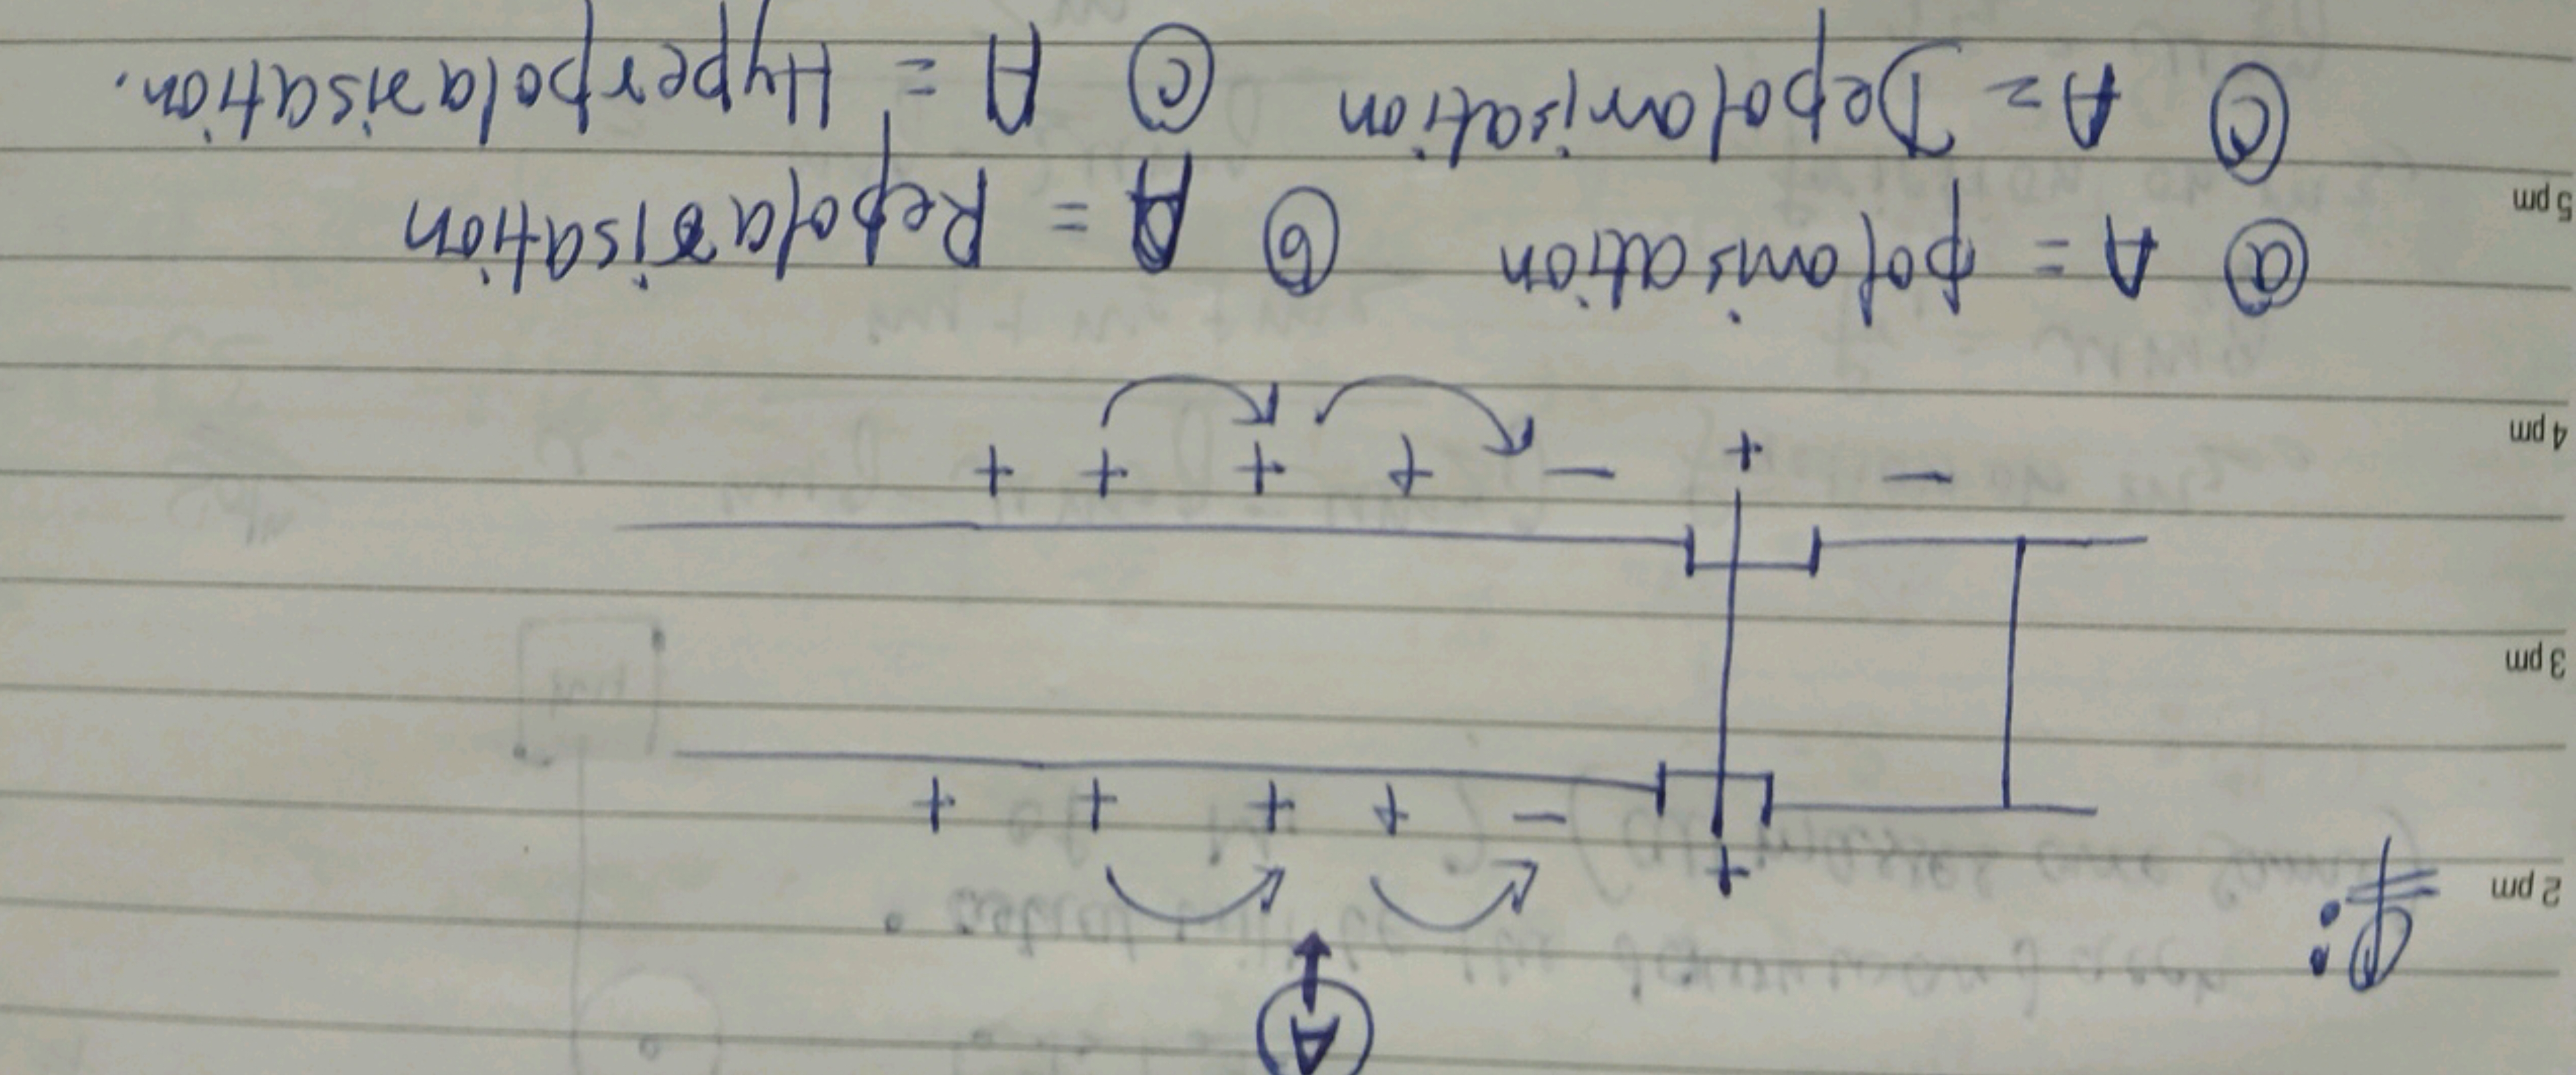 A
Q:
2 pm
+
− + + + +
3 pm
− + − + + + +
4 pm
(a) A = polarisation (b) A = Repolarisation
5 pm
(c) A = Depolarisation (c) A = Hyperpolarisation.